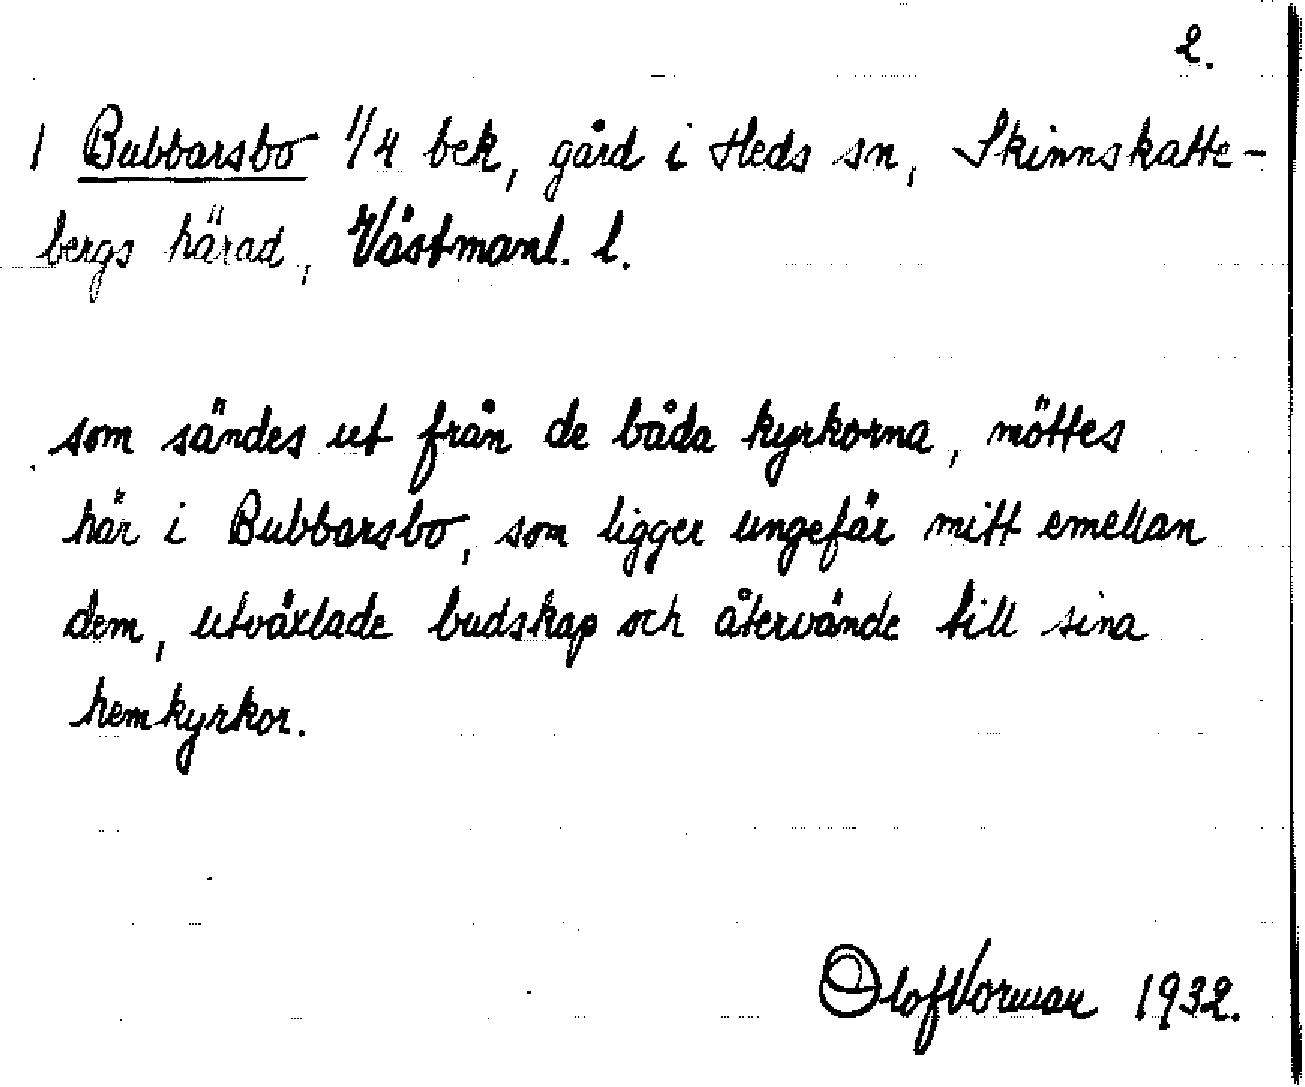 2.
1 Bubbarsbo 1/4 bek, gård i Heds sn, Skinnskatte-
bergs härad, Västmanl. l.
som sändes ut från de båda kyrkorna, möttes
här i Bubbarsbo, som ligger ungefär mitt emellan
dem, utväxlade budskap och återvände till sina
hemkyrkor.
Olof Vorman 1932.